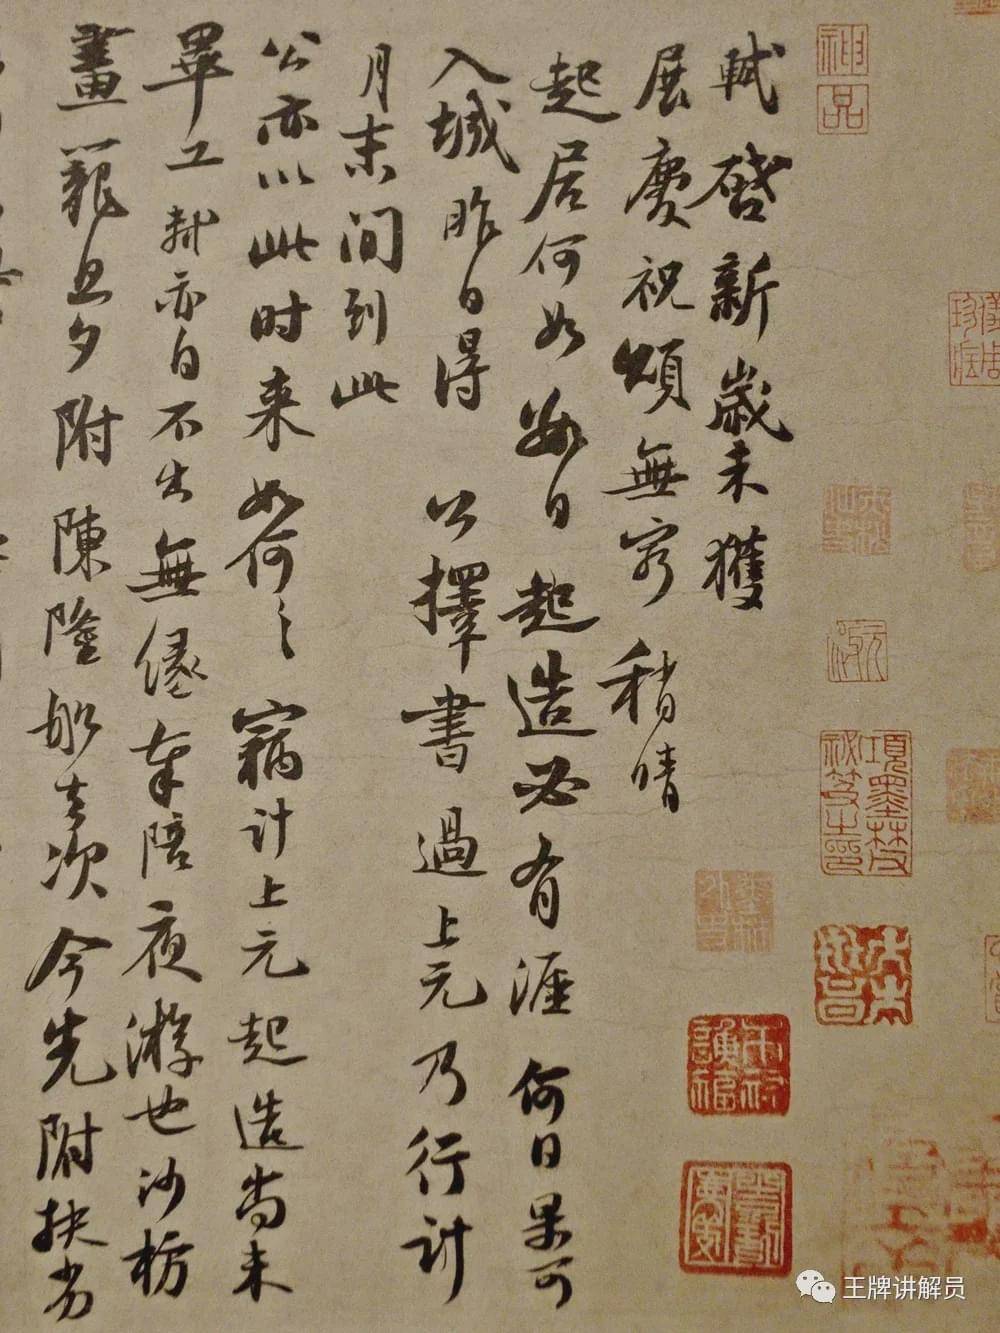 軾啓新歲未獲
展慶祝頌無窮稍晴
起居何如數日起造必有涯何日果可
入城昨日得公擇書過上元乃行計
月末間到此
公亦以此時來如何〻竊計上元起造尚未
畢工軾亦自不出無緣奉陪夜游也沙枋
畫籠旦夕附陳隆船去次今先附扶劣
神品
項墨林父
祕笈之印
王牌讲解员